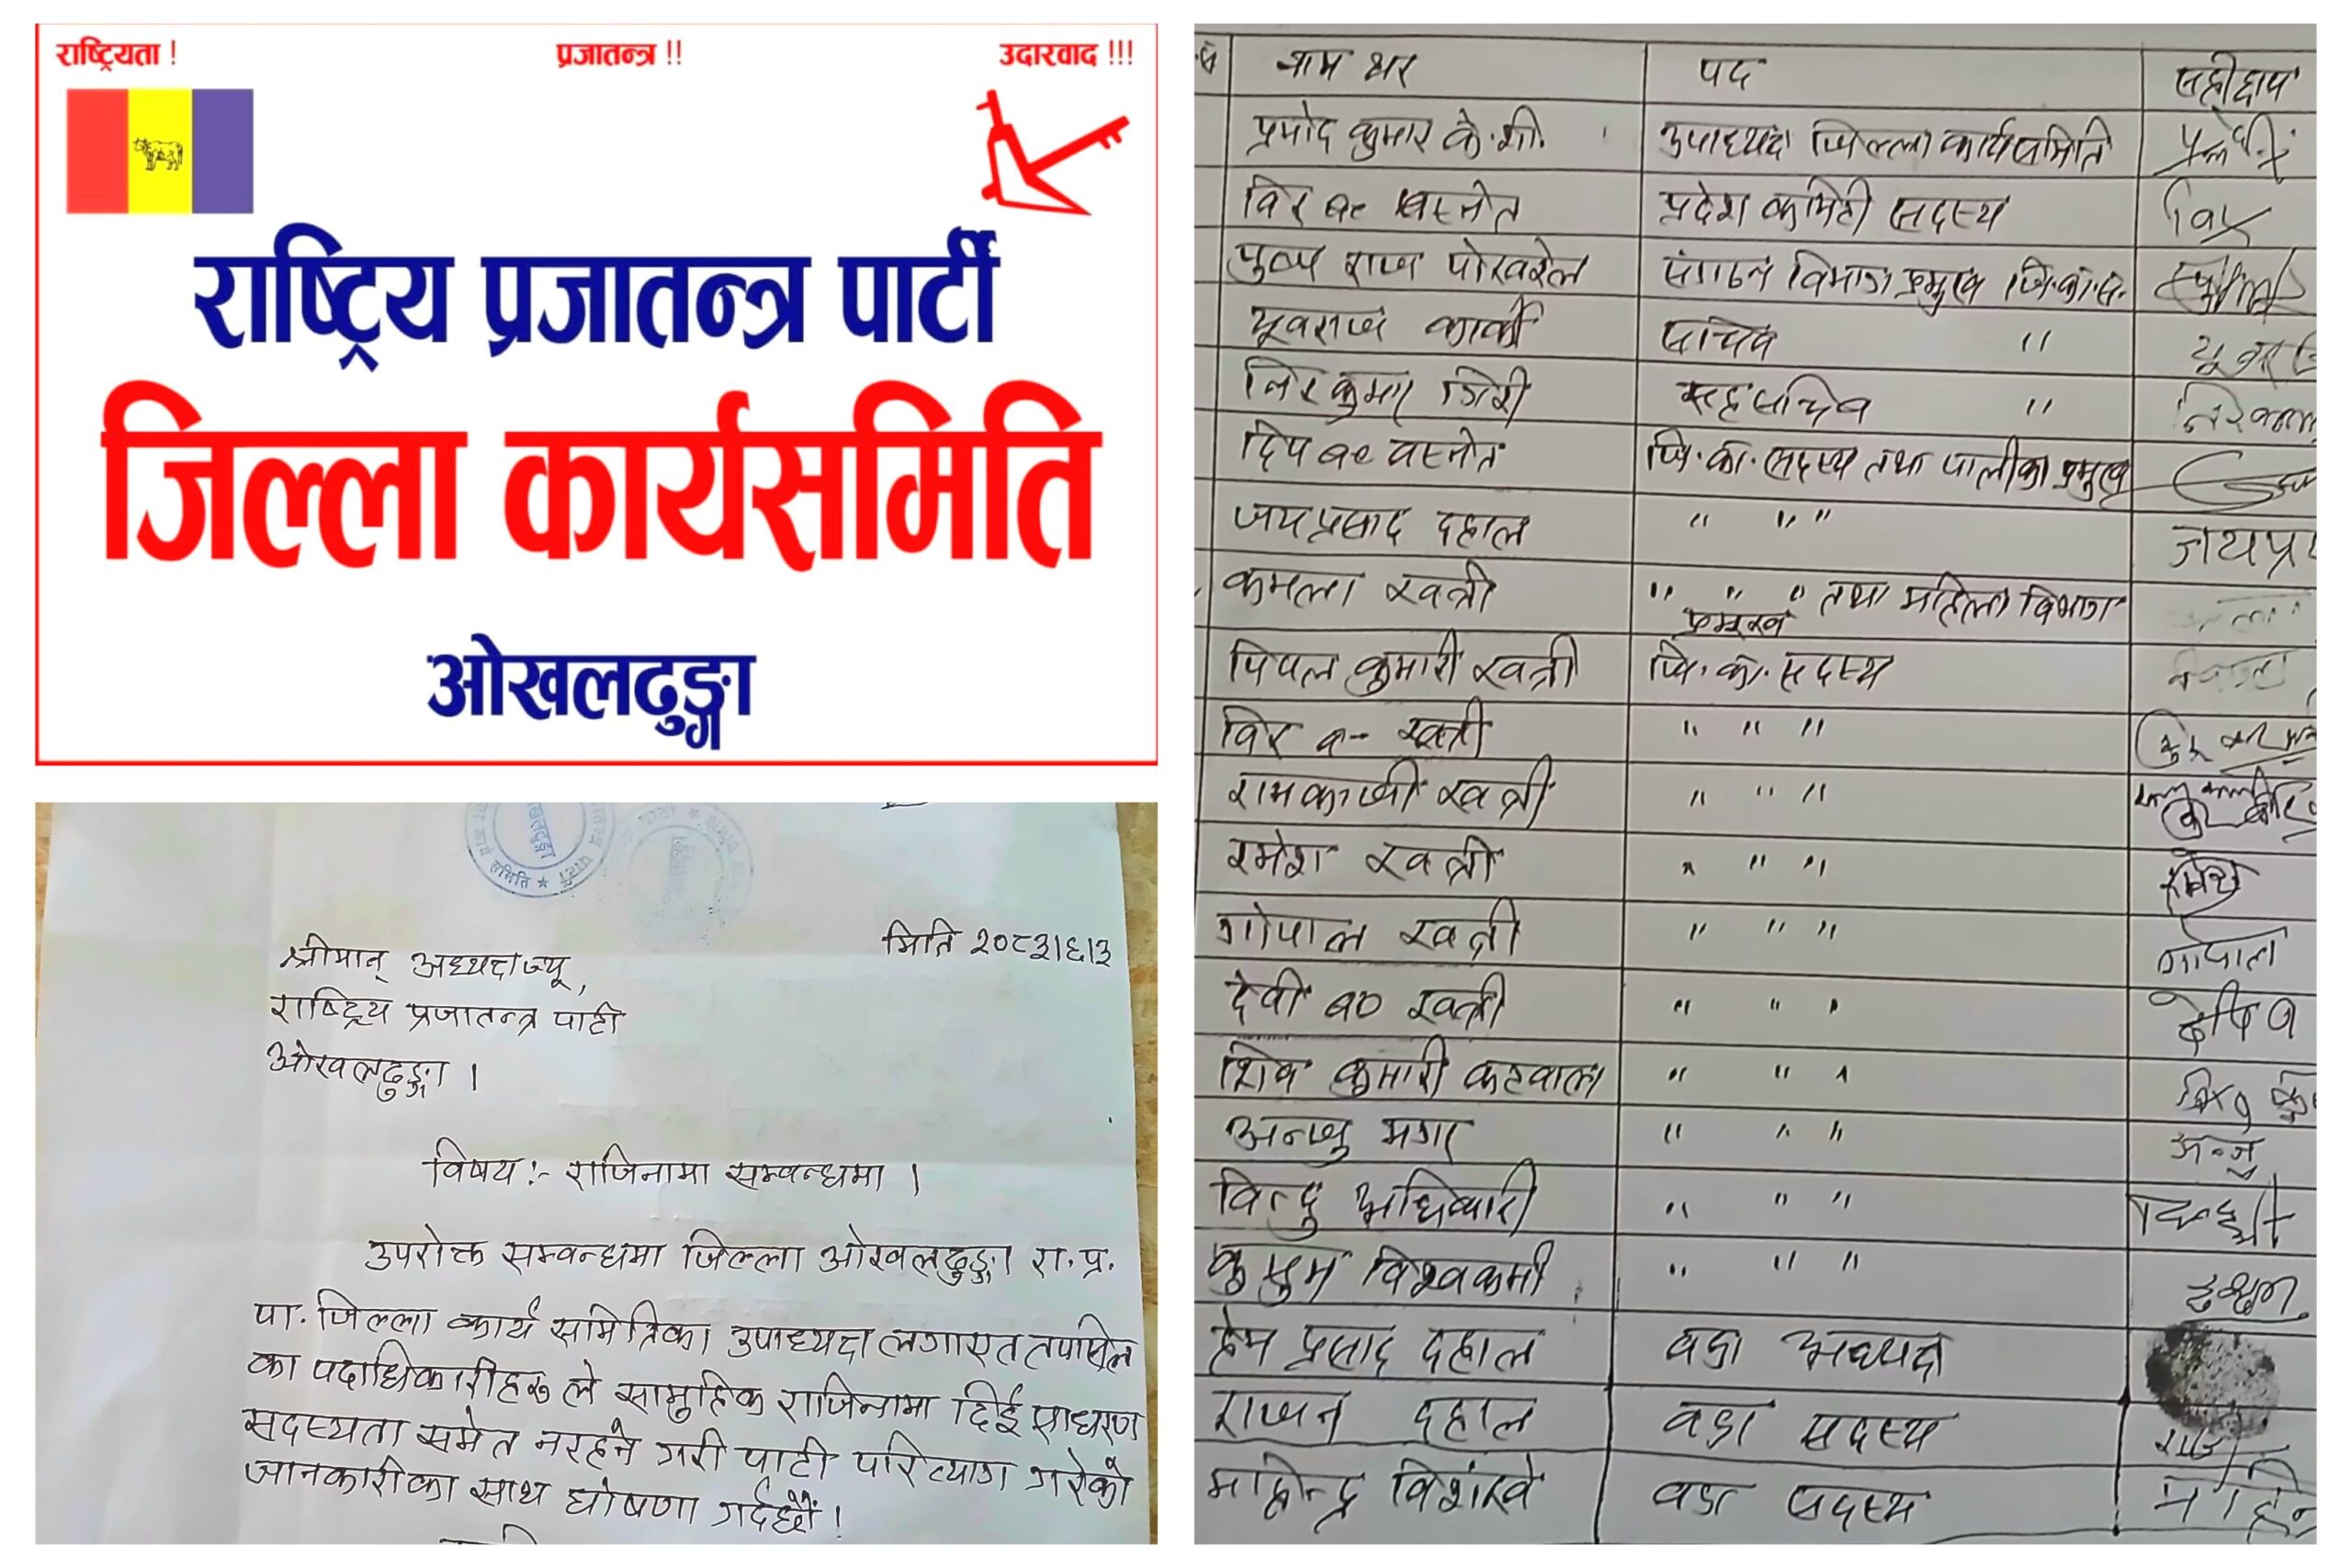 राष्ट्रियता ! प्रजातन्त्र !! उदारवाद !!!
राष्ट्रिय प्रजातन्त्र पार्टी
जिल्ला कार्यसमिति
ओखलढुङ्गा
मिति २०८३।६।३
श्रीमान् अध्यक्षज्यू,
राष्ट्रिय प्रजातन्त्र पार्टी
ओखलढुङ्गा ।
विषय :- राजिनामा सम्वन्धमा ।
उपरोक्त सम्वन्धमा जिल्ला ओखलढुङ्गा रा. प्र.
पा. जिल्ला कार्य समितिका उपाध्यक्ष लगाएत तपसिल
का पदाधिकारीहरु ले सामुहिक राजिनामा दिई साधारण
सदस्यता समेत नरहने गरी पार्टी परित्याग गरेको
जानकारीका साथ घोषणा गर्दछौं !
नाम थर पद सहीछाप
प्रमोद कुमार के.सी. उपाध्यक्ष जिल्ला कार्यसमिति
विर ब० बस्नेत प्रदेश कमिटी सदस्य
पुष्प राज पोखरेल संगठन विभाग प्रमुख जि.का.स.
यूवराज कार्की सचिव "
निर कुमार गिरी सह सचिव "
दिप ब० वस्नेत जि.का. सदस्य तथा पालीका प्रमुख
जय प्रसाद दहाल " " " जयप्र
कमला खत्री " " " तथा महिला विभाग
प्रमुख
पिपल कुमारी खत्री जि.का. सदस्य
विर ब- खत्री " " "
रामकाजी खत्री " " "
रमेश खत्री " " " रमेश
गोपाल खत्री " " " गोपाल
देवी ब० खत्री " " "
शिव कुमारी कटवाल " " "
अन्जु मगर " " " अन्जु
विन्दु अधिकारी " " "
कुसुम विश्वकर्मा " " "
हेम प्रसाद दहाल वडा अध्यक्ष
राजन दहाल वडा सदस्य
वडा सदस्य